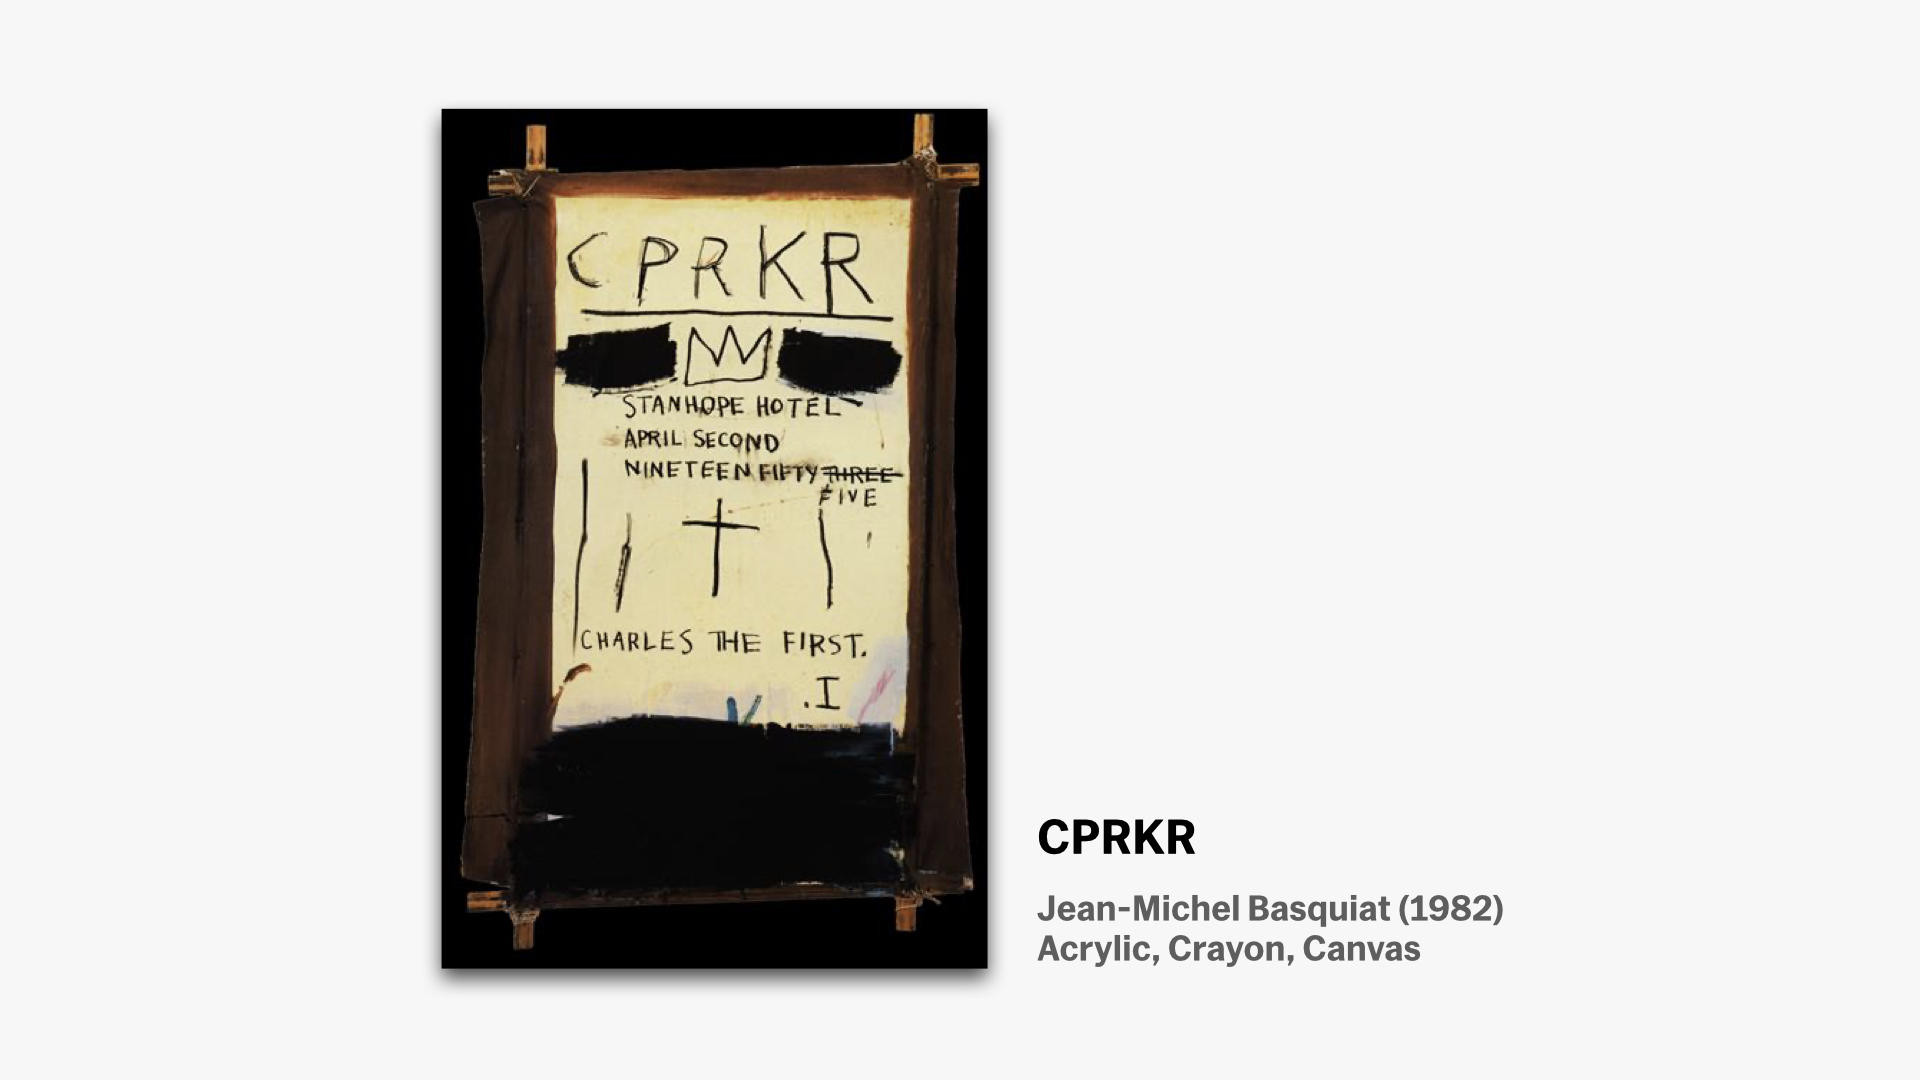 CPRKR
STANHOPE HOTEL
APRIL SECOND
NINETEEN FIFTY THREE
FIVE
CHARLES THE FIRST.
.I
CPRKR
Jean-Michel Basquiat (1982)
Acrylic, Crayon, Canvas